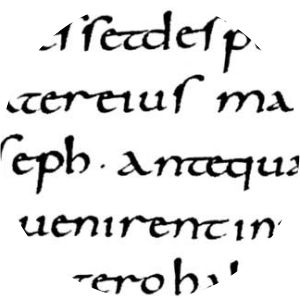 setdesp
tereius ma
seph · antequa
uenirent in
ero